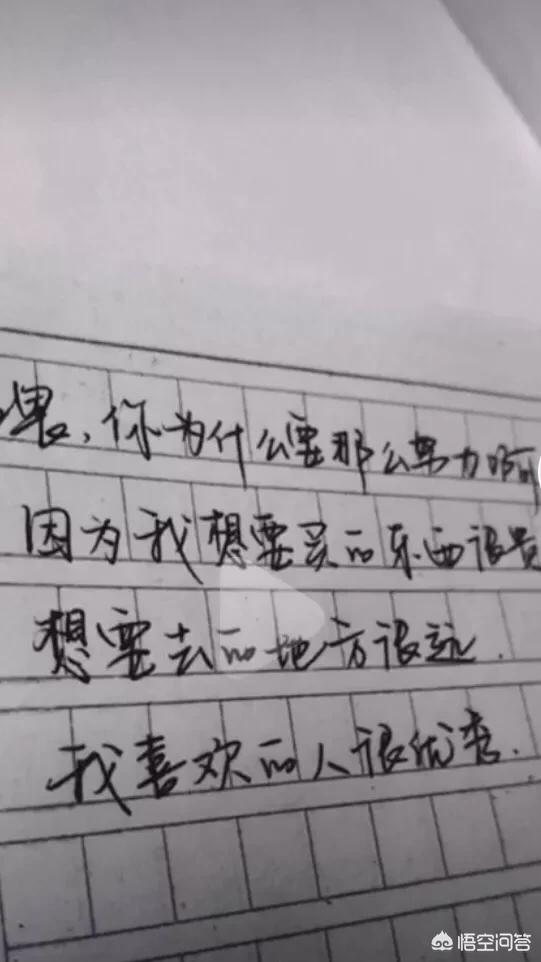 嘿，你为什么要那么努力啊
因为我想要买的东西很贵
想要去的地方很远.
我喜欢的人很优秀.
悟空问答